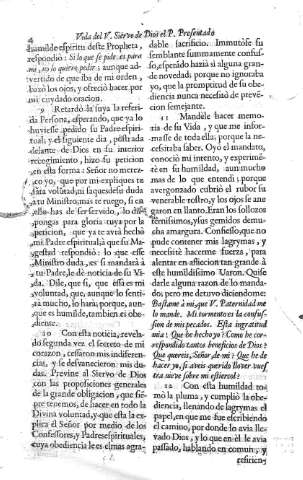 4 Vida del V. Siervo de Dios el P. Presentado
humilde espiritu deste Propheta,
respondiò: Si lo que se pide es para
mi, no lo quiero pedir: aunque ad-
vertido de que iba de mi orden,
baxò los ojos, y ofreciò hacer por
mi cuydado oracion.
Retardò la suya la referi-
da Persona, esperando, que ya lo
huviesse pedido su Padre espiri-
tual; y el siguiente dia, postrada
delante de Dios en su interior
recogimiento, hizo su peticion
en esta forma: Señor no merez-
co yo, que por mi expliques tu
santa voluntad; si aquesse duda
tu Ministro, mas te ruego, si en
ello has de ser servido, lo dis-
pongas para gloria tuya por la
peticion, que ya te avrà hecho
mi Padre espiritual; à que su Ma-
gestad respondiò: lo que esse
Ministro duda, es si mandarà à
tu Padre, le dè noticia de su Vi-
da. Dile, que si, que essa es mi
voluntad, que, aunque lo senti-
rà mucho, lo harà; porque, aun-
que es humilde, tambien es obe-
diente.
10 Con esta noticia, revela-
do segunda vez el secreto de mi
corazon, cessaron mis indiferen-
cias, y se desvanecieron mis du-
das. Previne al Siervo de Dios
con las proposiciones generales
de la grande obligacion, que siẽ-
pre tenemos, de hacer en todo la
Divina voluntad, y que esta la ex-
plica el Señor por medio de los
Confessores, y Padres espirituales,
cuya obediencia le es al mas agra-
dable sacrificio. Immutòse su
semblante summamente confu-
so, esperando haxia si alguna gran-
de novedad; porque no ignoraba
yo, que la promptitud de su obe-
diencia nunca necessitò de preve-
cion semejante.
11 Mandèle hacer memo-
ria de su Vida, y que me infor-
masse de toda ella; porque la ne-
cessitaba saber. Oyò el mandato,
conociò mi intento, y experimè-
tè en su humildad, aun mucho
mas de lo que entendi; porque
avergonzado cubriò el rubor su
venerable rostro, y los ojos se ane-
garon en llanto. Eran los sollozos
tiernissimos, y sus gemidos demu-
cha amargura. Confiesso, que no
pude contener mis lagrymas, y
necessitè hacerme fuerza, para
alentar en afliccion tan grande à
este humildissimo Varon. Quise
darle alguna razon de lo manda-
do; pero me detuvo diciendome:
Bastame à mi, que V. Paternidad me
lo mande. Mi tormento es la confus-
sion de mis pecados. Esta ingratitud
mia: Que he hecho yo? Como he cor-
respondido tantos beneficios de Dios?
Que quereis, Señor, de mi? Que he de
hacer yo, si aveis querido llover vues-
tra nieve sobre mi estiercol?
12 Con esta humildad to-
mò la pluma, y cumpliò la obe-
diencia, llenando de lagrymas el
papel, en que me fue escribiendo
el camino, por donde lo avia lle-
vado Dios, y lo que en èl le avia
passado, hablando en comun, y
resirien-